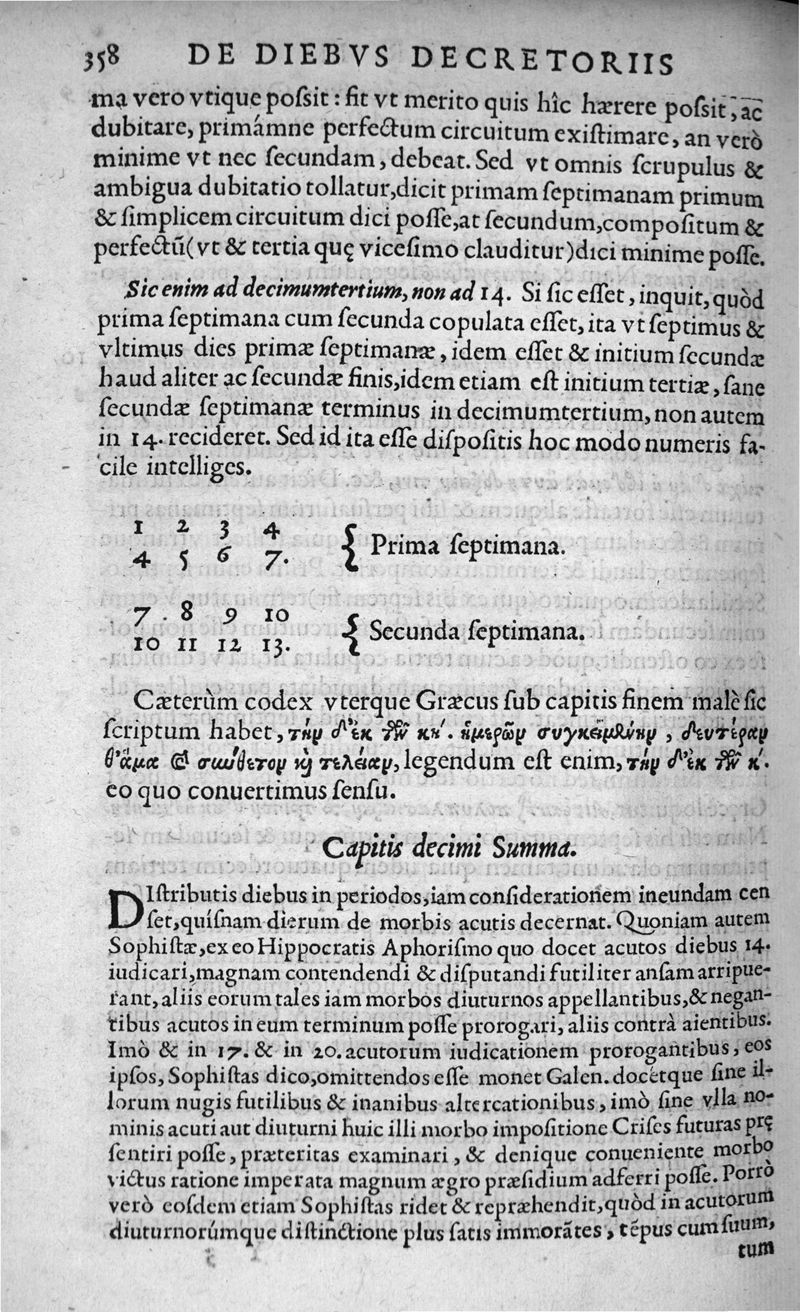 358 DE DIEBVS DECRETORIIS
ma vero vtique poſsit : fit vt merito quis hîc hærere poſsit, ac
dubitare, primámne perfectum circuitum exiſtimare, an verò
minime vt nec ſecundam, debeat. Sed vt omnis ſcrupulus &
ambigua dubitatio tollatur, dicit primam ſeptimanam primum
& ſimplicem circuitum dici poſſe, at ſecundum, compoſitum &
perfectũ (vt & tertia quę viceſimo clauditur) dici minime poſſe.
Sic enim ad decimumtertium, non ad 14. Si ſic eſſet, inquit, quòd
prima ſeptimana cum ſecunda copulata eſſet, ita vt ſeptimus &
vltimus dies primæ ſeptimanæ, idem eſſet & initium ſecundæ
haud aliter ac ſecundæ finis, idem etiam eſt initium tertiæ, ſane
ſecundæ ſeptimanæ terminus in decimumtertium, non autem
in 14. recideret. Sed id ita eſſe diſpoſitis hoc modo numeris fa-
cile intelliges.
1 2 3 4
4 5 6 7. { Prima ſeptimana.
7. 8 9 10
10 11 12 13. { Secunda ſeptimana.
Cæterùm codex vterque Græcus ſub capitis finem malè ſic
ſcriptum habet, τὴν δ'ἐκ τῶν κη'. ἡμερῶν συγκειμένην, δευτέραν
θ'ἅμα καὶ σύνθετον καὶ τελείαν, legendum eſt enim, τὴν δ'ἐκ τῶν κ'.
eo quo conuertimus ſenſu.
Capitis decimi Summa.
DIſtributis diebus in periodos, iam conſiderationem ineundam cen
ſet, quiſnam dierum de morbis acutis decernat. Quoniam autem
Sophiſtæ, ex eo Hippocratis Aphoriſmo quo docet acutos diebus 14.
iudicari, magnam contendendi & diſputandi futiliter anſam arripue-
rant, aliis eorum tales iam morbos diuturnos appellantibus, & negan-
tibus acutos in eum terminum poſſe prorogari, aliis contrà aientibus.
Imò & in 17. & in 20. acutorum iudicationem prorogantibus, eos
ipſos, Sophiſtas dico, omittendos eſſe monet Galen. docétque ſine il-
lorum nugis futilibus & inanibus altercationibus, imò ſine vlla no-
minis acuti aut diuturni huic illi morbo impoſitione Criſes futuras prę
ſentiri poſſe, præteritas examinari, & denique conueniente morbo
victus ratione imperata magnum ægro præſidium adferri poſſe. Porrò
verò eoſdem etiam Sophiſtas ridet & repræhendit, quòd in acutorum
diuturnorúmque diſtinctione plus ſatis immorãtes, tẽpus cum ſuum,
tum